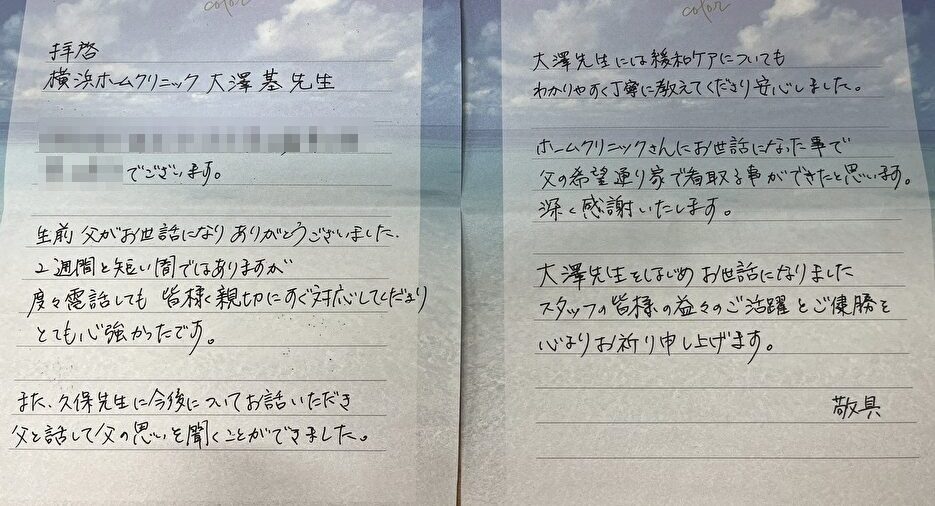 color
拝啓
横浜ホームクリニック 大澤 基 先生
でございます。
生前 父がお世話になり ありがとうございました.
2週間と短い間ではありますが
度々電話しても 皆様く親切にすぐ対応してくださり
とても心強かったです。
また、久保先生に今後についてお話いただき
父と話して父の思いを聞くことができました。
color
大澤先生には緩和ケアについても
わかりやすく丁寧に教えてくださり安心しました。
ホームクリニックさんにお世話になった事で
父の希望通り家で看取る事ができたと思います。
深く感謝いたします。
大澤先生をはじめ お世話になりました
スタッフの皆様の益々のご活躍とご健勝を
心よりお祈り申し上げます。
敬具